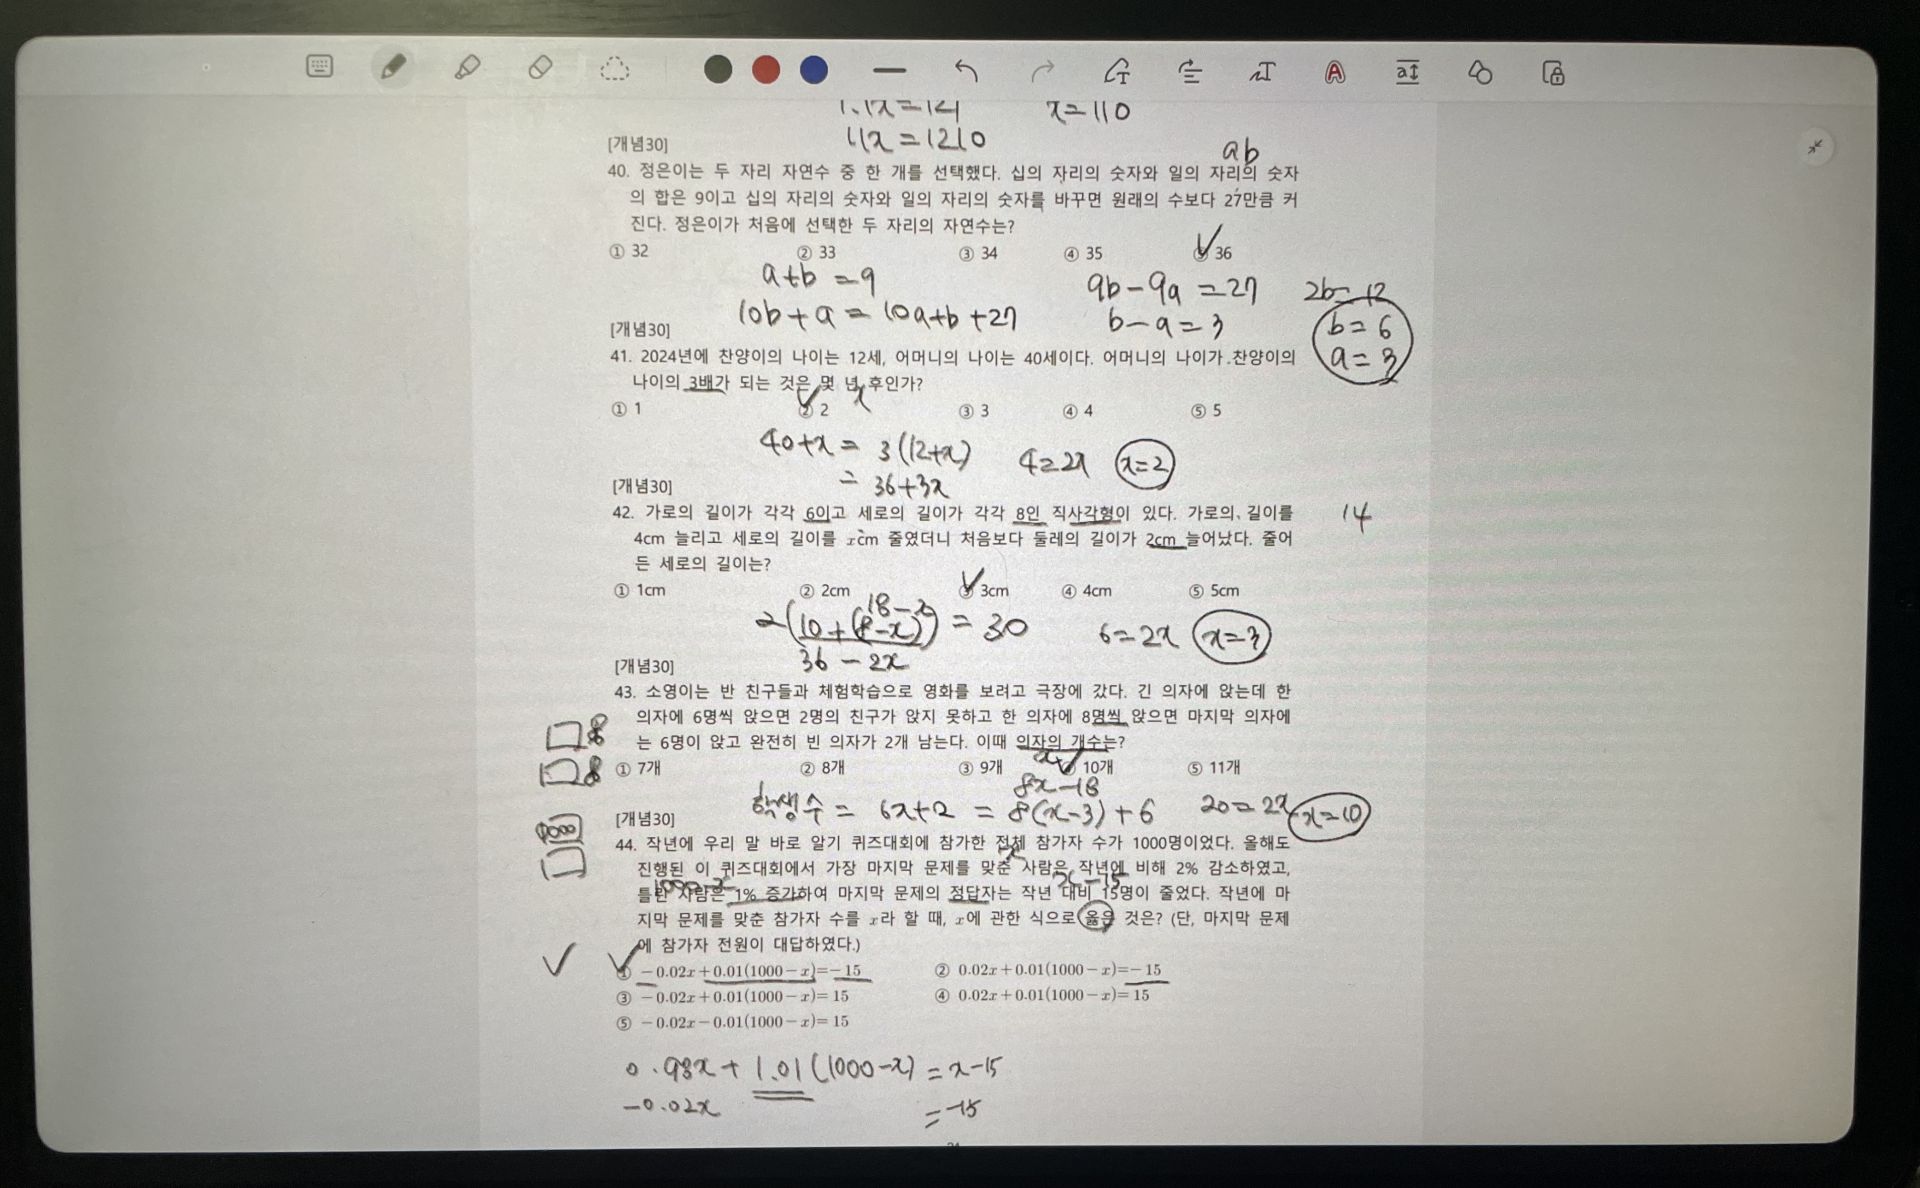 1.1x=121 x=110
11x=1210
[개념30]
ab
40. 정은이는 두 자리 자연수 중 한 개를 선택했다. 십의 자리의 숫자와 일의 자리의 숫자
의 합은 9이고 십의 자리의 숫자와 일의 자리의 숫자를 바꾸면 원래의 수보다 27만큼 커
진다. 정은이가 처음에 선택한 두 자리의 자연수는?
① 32 ② 33 ③ 34 ④ 35 ⑤ 36
a+b=9 9b-9a=27 2b=12
10b+a=10a+b+27 b-a=3 b=6
a=3
[개념30]
41. 2024년에 찬양이의 나이는 12세, 어머니의 나이는 40세이다. 어머니의 나이가 찬양이의
나이의 3배가 되는 것은 몇 년 후인가?
x
① 1 ② 2 ③ 3 ④ 4 ⑤ 5
40+x= 3(12+x) 4=2x x=2
= 36+3x
[개념30]
42. 가로의 길이가 각각 6이고 세로의 길이가 각각 8인 직사각형이 있다. 가로의 길이를 14
4cm 늘리고 세로의 길이를 xcm 줄였더니 처음보다 둘레의 길이가 2cm 늘어났다. 줄어
든 세로의 길이는?
① 1cm ② 2cm ③ 3cm ④ 4cm ⑤ 5cm
18-x
2(10+(8-x))=30 6=2x x=3
36-2x
[개념30]
43. 소영이는 반 친구들과 체험학습으로 영화를 보려고 극장에 갔다. 긴 의자에 앉는데 한
의자에 6명씩 앉으면 2명의 친구가 앉지 못하고 한 의자에 8명씩 앉으면 마지막 의자에
는 6명이 앉고 완전히 빈 의자가 2개 남는다. 이때 의자의 개수는?
8
8
① 7개 ② 8개 ③ 9개 ④ 10개 ⑤ 11개
8x-18
학생수= 6x+2 = 8(x-3)+6 20=2x x=10
[개념30]
44. 작년에 우리 말 바로 알기 퀴즈대회에 참가한 전체 참가자 수가 1000명이었다. 올해도
x
진행된 이 퀴즈대회에서 가장 마지막 문제를 맞춘 사람은 작년에 비해 2% 감소하였고,
1000-x x-15
틀린 사람은 1% 증가하여 마지막 문제의 정답자는 작년 대비 15명이 줄었다. 작년에 마
지막 문제를 맞춘 참가자 수를 x라 할 때, x에 관한 식으로 옳은 것은? (단, 마지막 문제
에 참가자 전원이 대답하였다.)
① -0.02x+0.01(1000-x)=-15 ② 0.02x+0.01(1000-x)=-15
③ -0.02x+0.01(1000-x)=15 ④ 0.02x+0.01(1000-x)=15
⑤ -0.02x-0.01(1000-x)=15
0.98x+1.01(1000-x)=x-15
-0.02x =-15